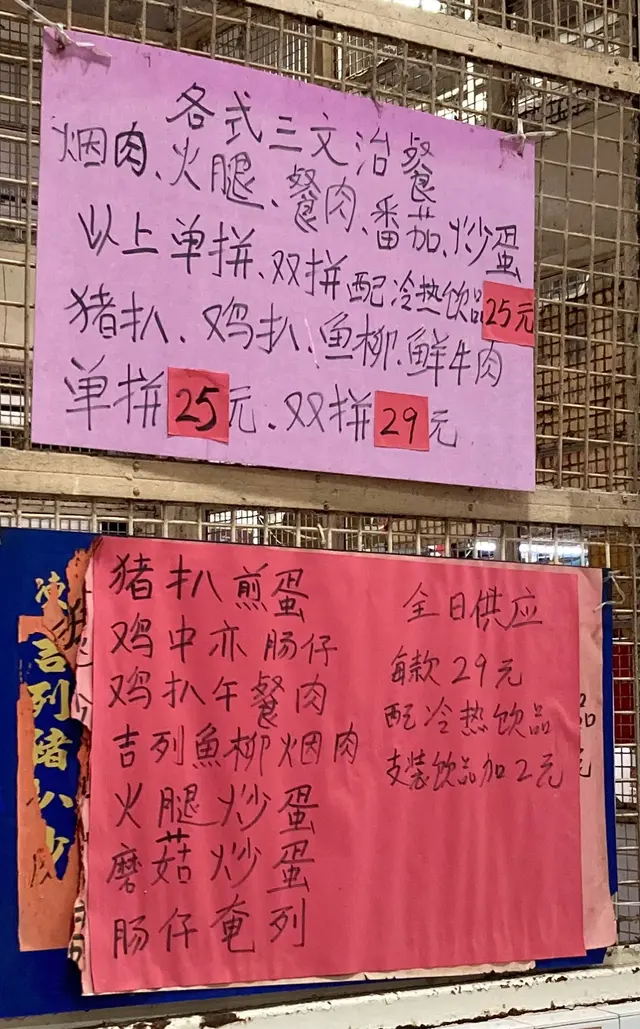 各式三文治餐
烟肉、火腿、餐肉、番茄、炒蛋
以上单拼、双拼配冷热饮品25元
猪扒、鸡扒、鱼柳、鲜牛肉
单拼25元、双拼29元
猪扒煎蛋
鸡中亦肠仔
鸡扒午餐肉
吉列魚柳烟肉
火腿炒蛋
磨菇炒蛋
肠仔奄列
全日供应
每款29元
配冷热饮品
支装饮品加2元
吉列豬
品